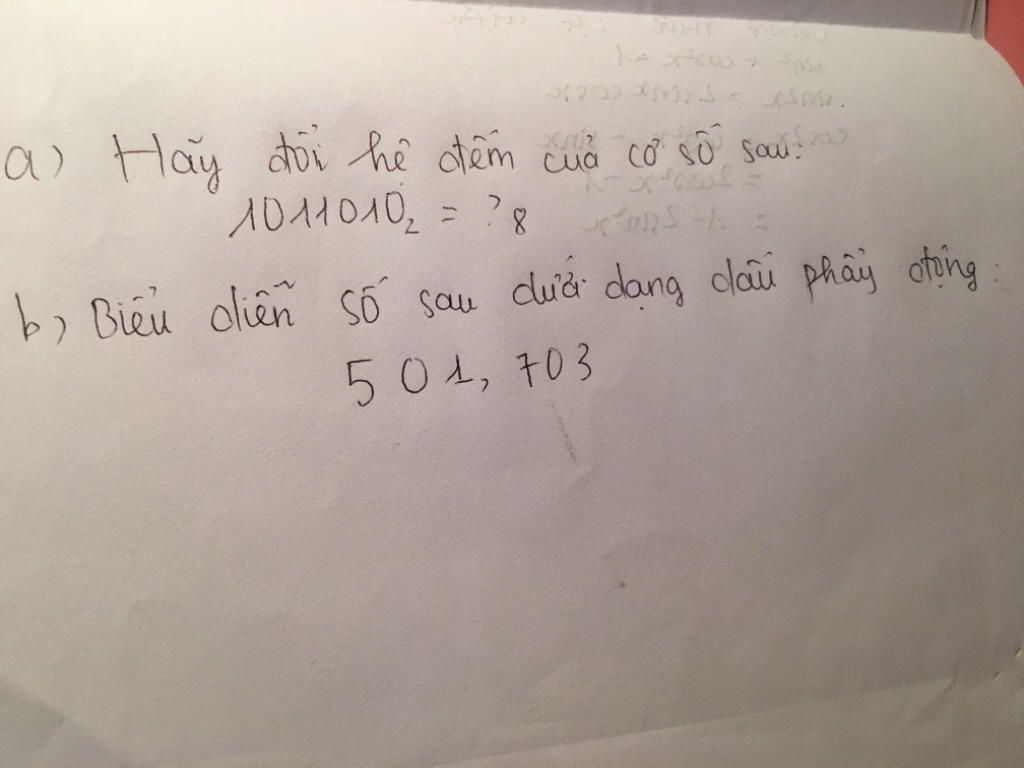 a) Hãy đổi hệ đếm của cơ số sau:
1011010₂ = ?₈
b) Biểu diễn số sau dưới dạng dấu phẩy động:
501,703